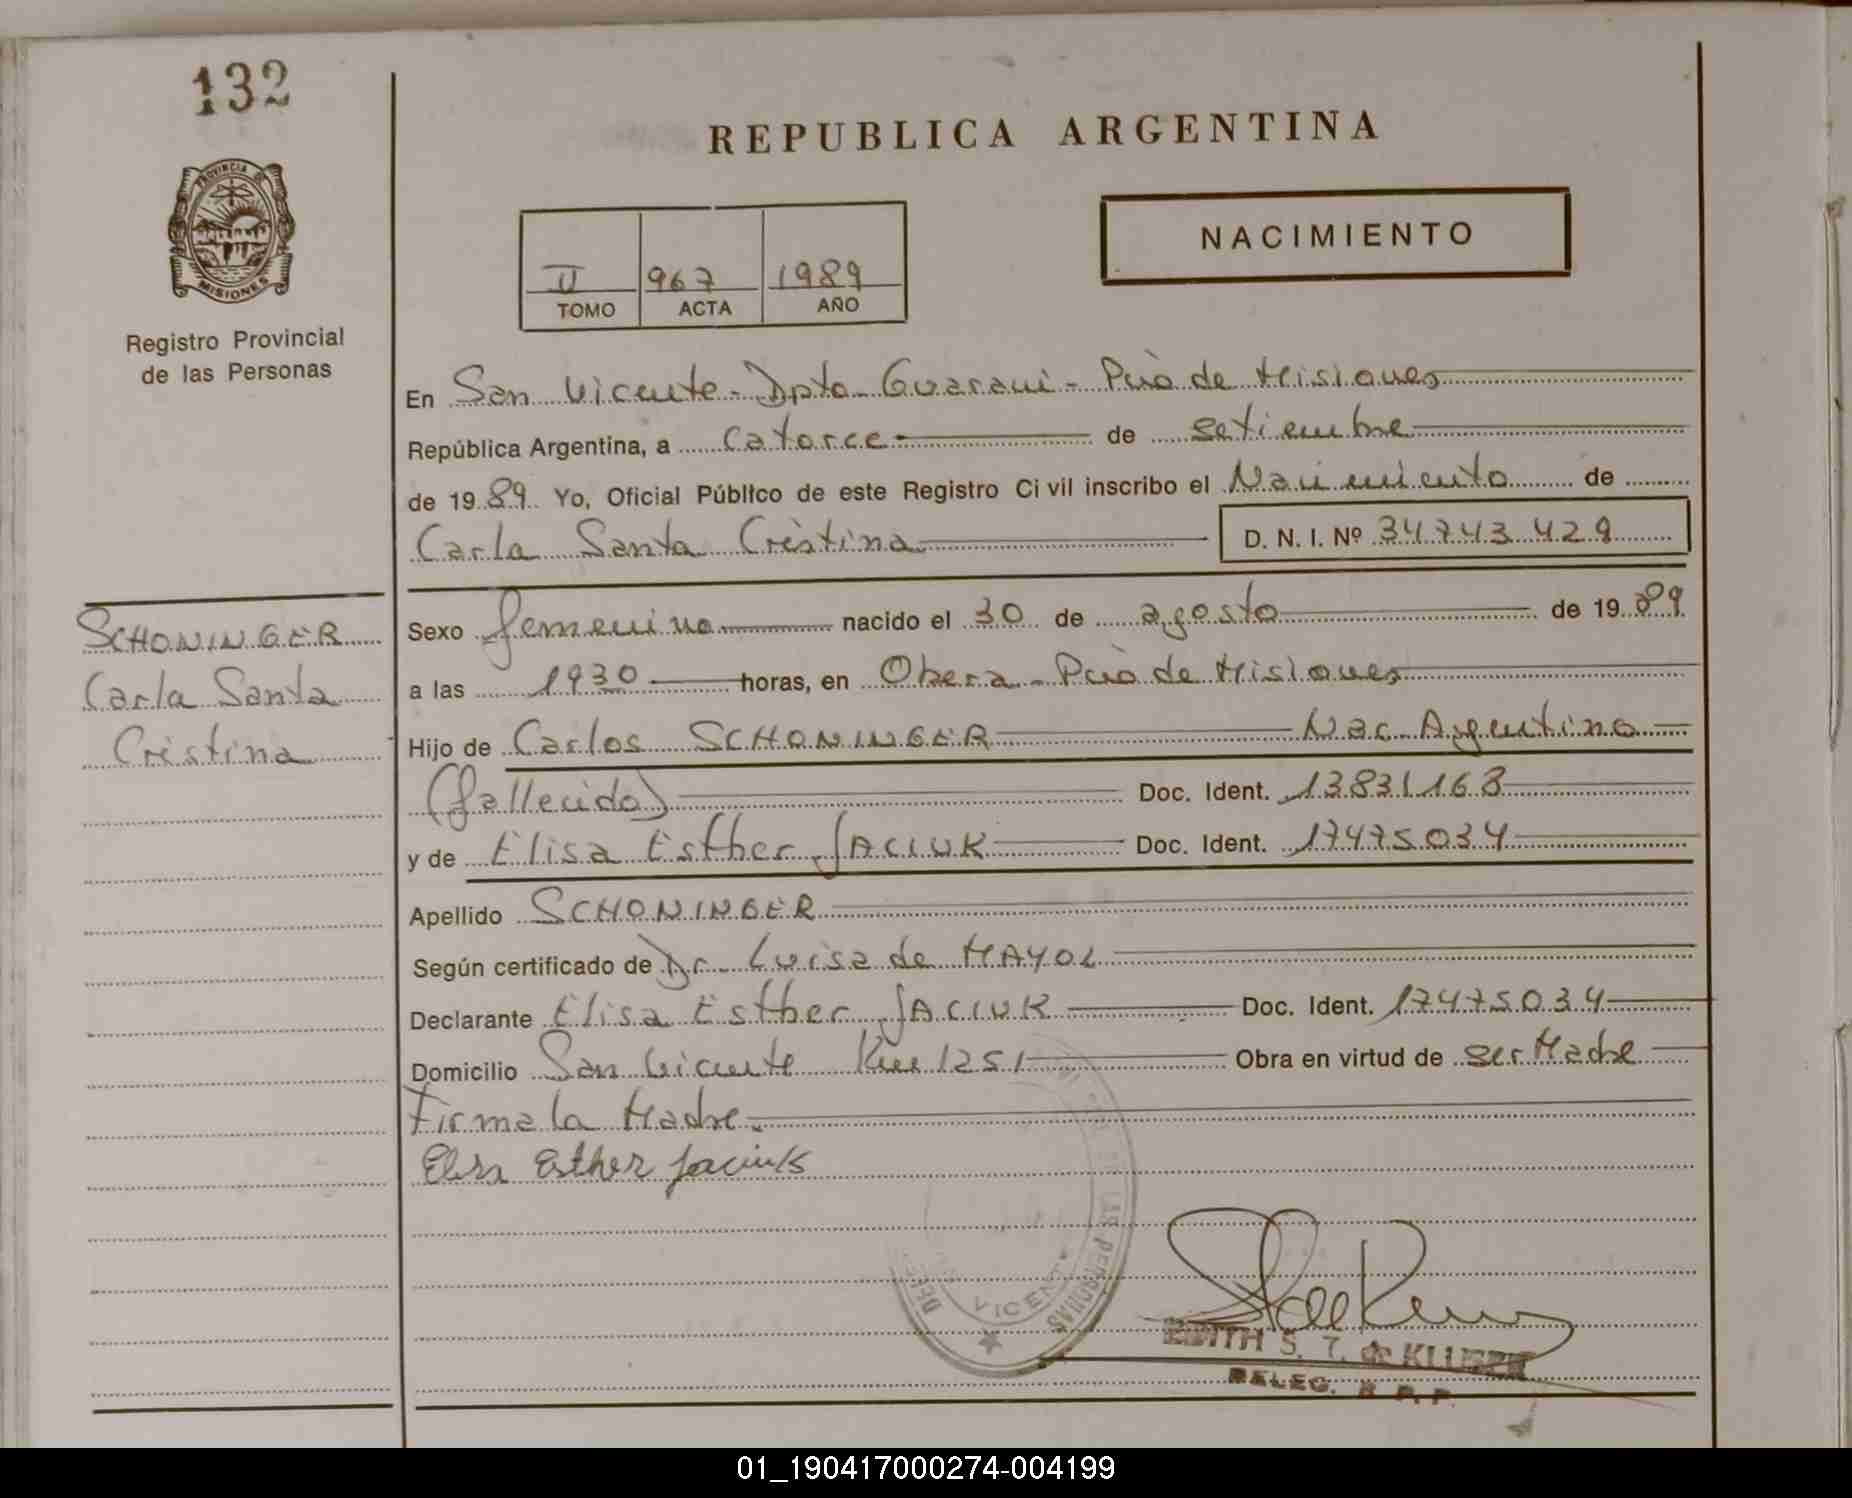 132
REPUBLICA ARGENTINA
PROVINCIA DE
MISIONES
Registro Provincial
de las Personas
II 967 1989
TOMO ACTA AÑO
NACIMIENTO
En San Vicente - Dpto Guarani - Pcia de Misiones
República Argentina, a Catorce de setiembre
de 1989 Yo, Oficial Público de este Registro Civil inscribo el Nacimiento de
Carla Santa Cristina D. N. I. Nº 34743429
SCHONINGER
Carla Santa
Cristina
Sexo femenino nacido el 30 de agosto de 1989
a las 1930 horas, en Obera - Pcia de Misiones
Hijo de Carlos SCHONINGER Nac. Argentino
(fallecido) Doc. Ident. 13831168
y de Elisa Esther JACIUK Doc. Ident. 17475034
Apellido SCHONINGER
Según certificado de Dr. Luisa de MAYOL
Declarante Elisa Esther JACIUK Doc. Ident. 17475034
Domicilio San Vicente Km 1251 Obra en virtud de ser Madre
Firma la Madre.
Elisa Esther Jaciuk
LAS PERSONAS
VICENTE
EDITH S. T. de KLUGE
DELEG. R. P. P.
01_190417000274-004199